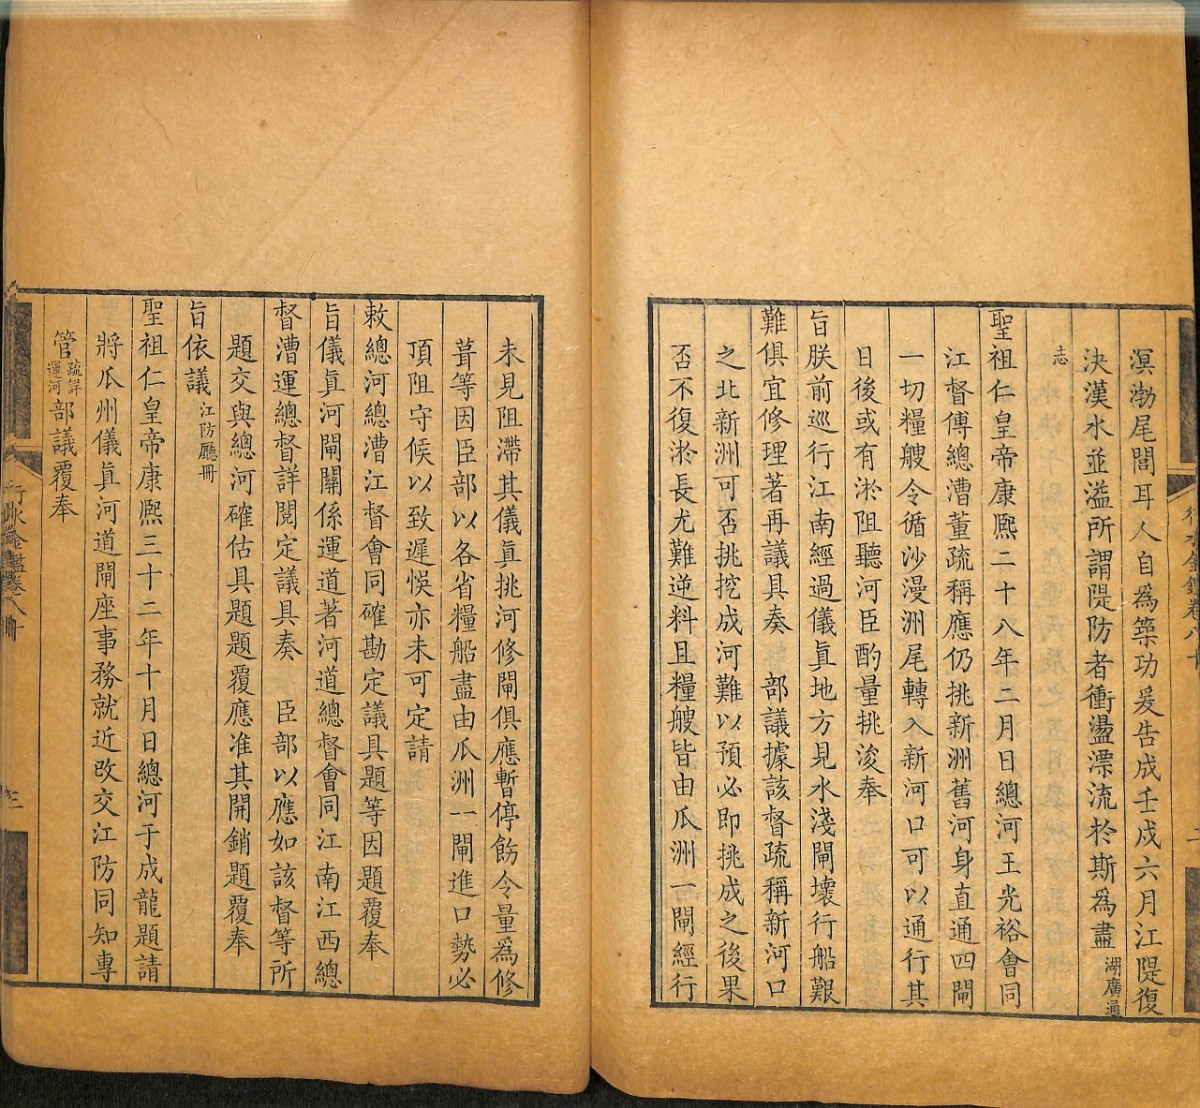 溟渤尾閭耳人自為築功爰告成壬戍六月江隄復
決漢水並溢所謂隄防者衝盪漂流於斯為盡湖廣通
志
聖祖仁皇帝康熈二十八年二月日總河王光裕會同
江督傅總漕董疏稱應仍挑新洲舊河身直通四閘
一切糧艘令循沙漫洲尾轉入新河口可以通行其
日後或有淤阻聽河臣酌量挑浚奉
旨朕前巡行江南經過儀眞地方見水淺閘壞行船艱
難俱宜修理著再議具奏　部議據該督疏稱新河口
之北新洲可否挑挖成河難以預必即挑成之後果
否不復淤長尤難逆料且糧艘皆由瓜洲一閘經行
未見阻滯其儀眞挑河修閘俱應暫停飭令量為修
葺等因臣部以各省糧船盡由瓜洲一閘進口勢必
頂阻守候以致遲悞亦未可定請
敕總河總漕江督會同確勘定議具題等因題覆奉
旨儀眞河閘關係運道著河道總督會同江南江西總
督漕運總督詳閱定議具奏　臣部以應如該督等所
題交與總河確估具題題覆應准其開銷題覆奉
旨依議江防廳冊
聖祖仁皇帝康熈三十二年十月日總河于成龍題請
將瓜州儀眞河道閘座事務就近改交江防同知專
管疏詳運河部議覆奉
行水金鑑卷八十
三